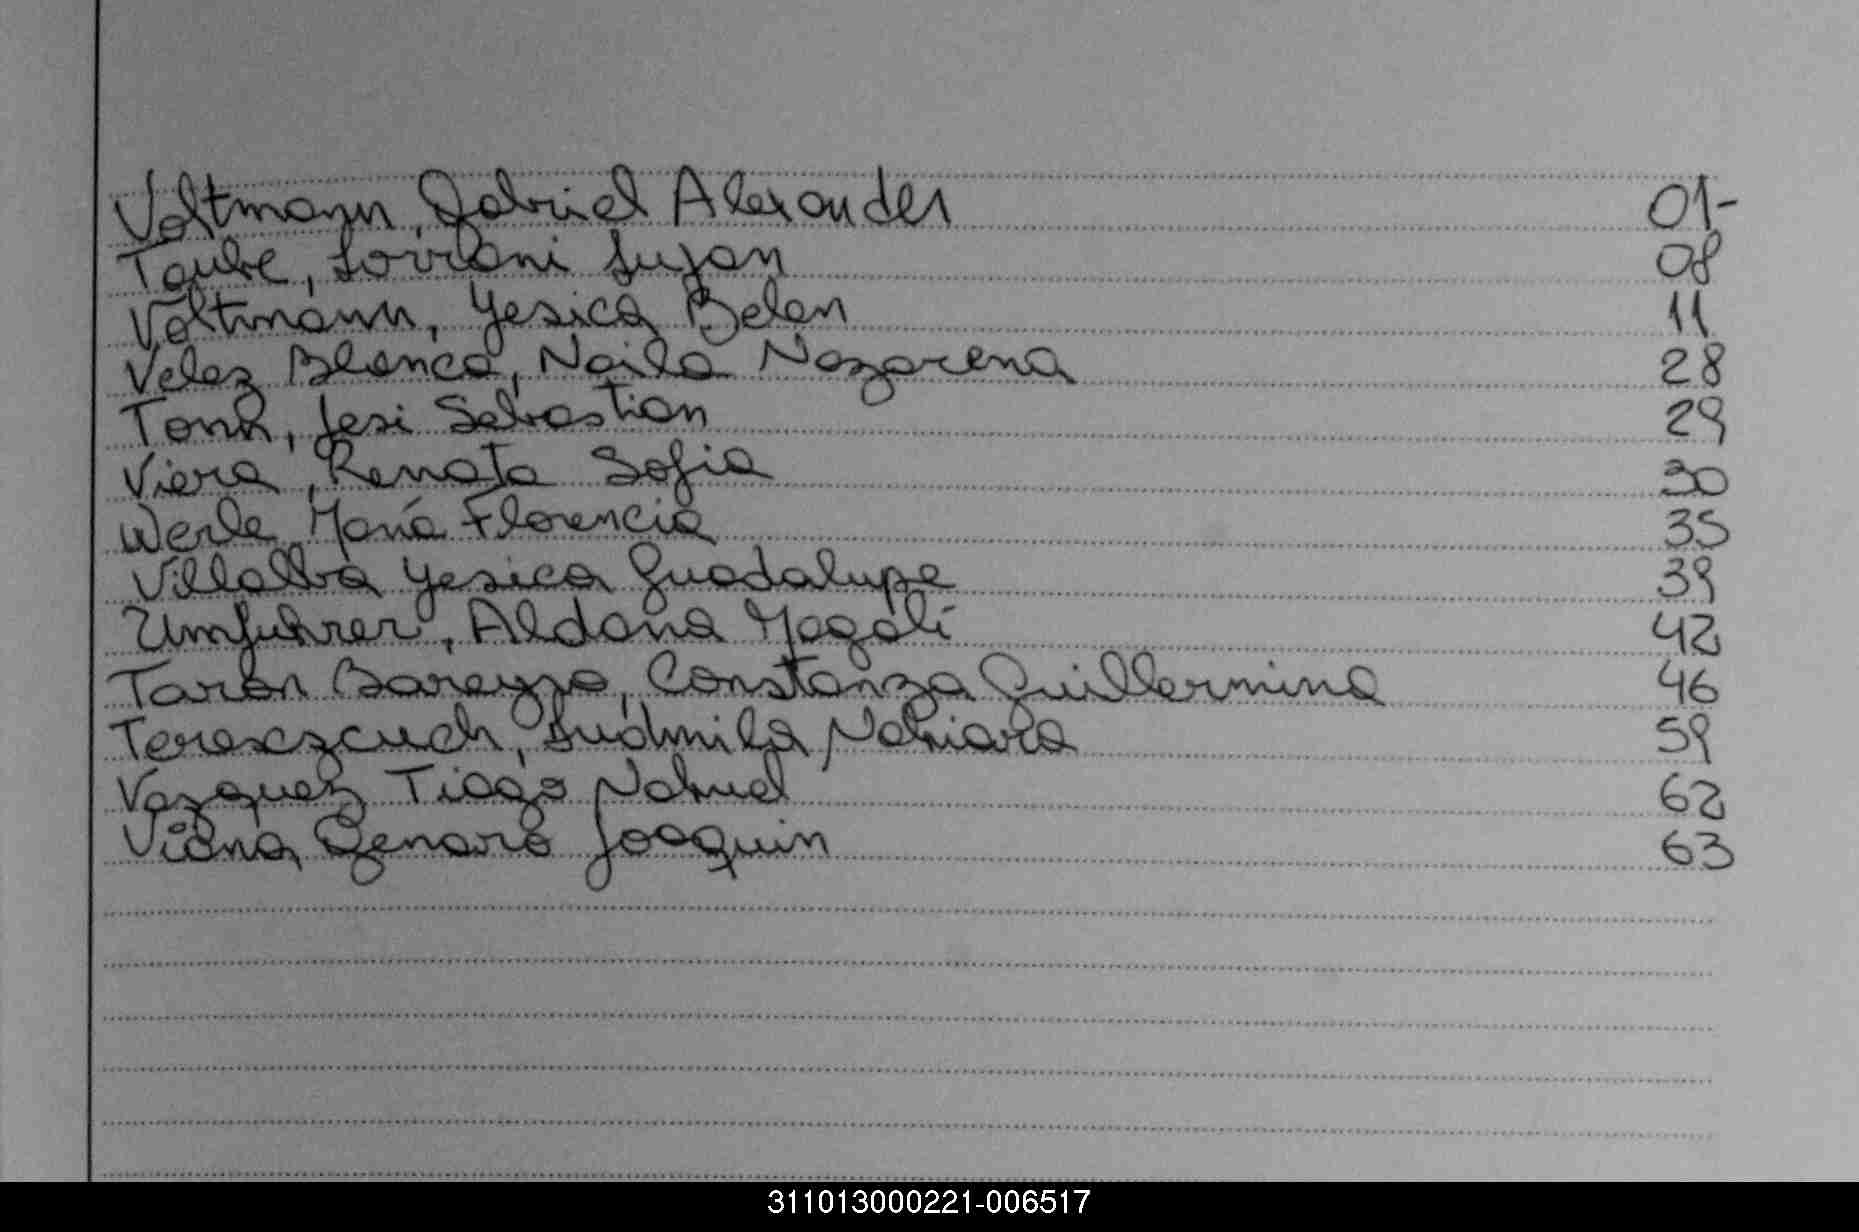 Voltmann, Gabriel Alexander 01-
Taube, Lorrani Lujan 08
Voltmann, Yesica Belen 11
Velez Blanco, Naila Nazarena 28
Tonn, Jesi Sebastian 29
Viera, Renata Sofia 30
Werle, María Florencia 35
Villalba Yesica Guadalupe 39
Umfuhrer, Aldana Magalí 42
Taron Bareyro, Constanza Guillermina 46
Ludmila Nahiara 59
Vazquez Tiago Nahuel 62
Viana, Genaro Joaquin 63
311013000221-006517